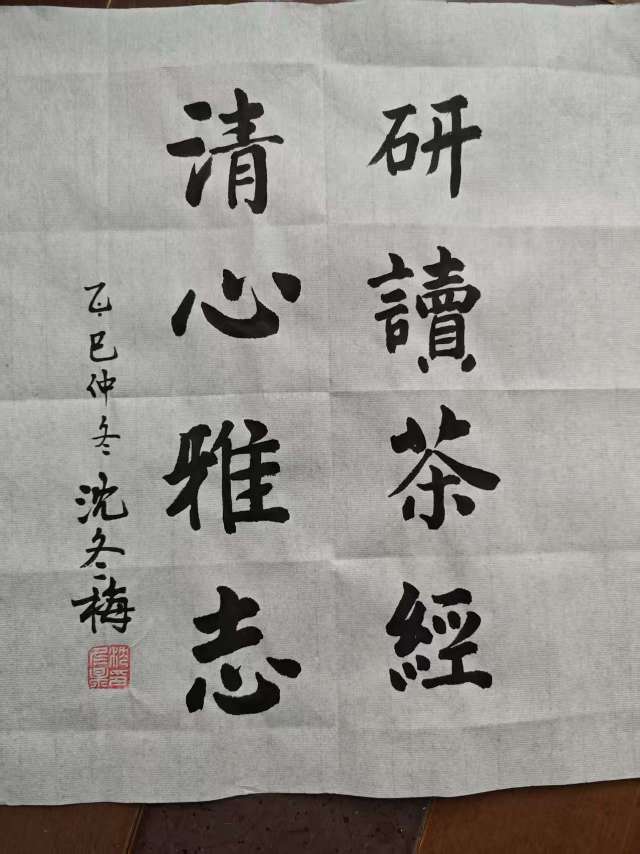 研讀茶經
清心雅志
乙巳仲冬 沈冬梅